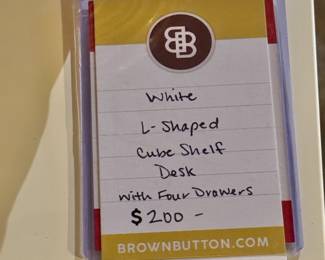 BB
White
L-Shaped
Cube Shelf
Desk
with Four Drawers
$200-
BROWNBUTTON.COM